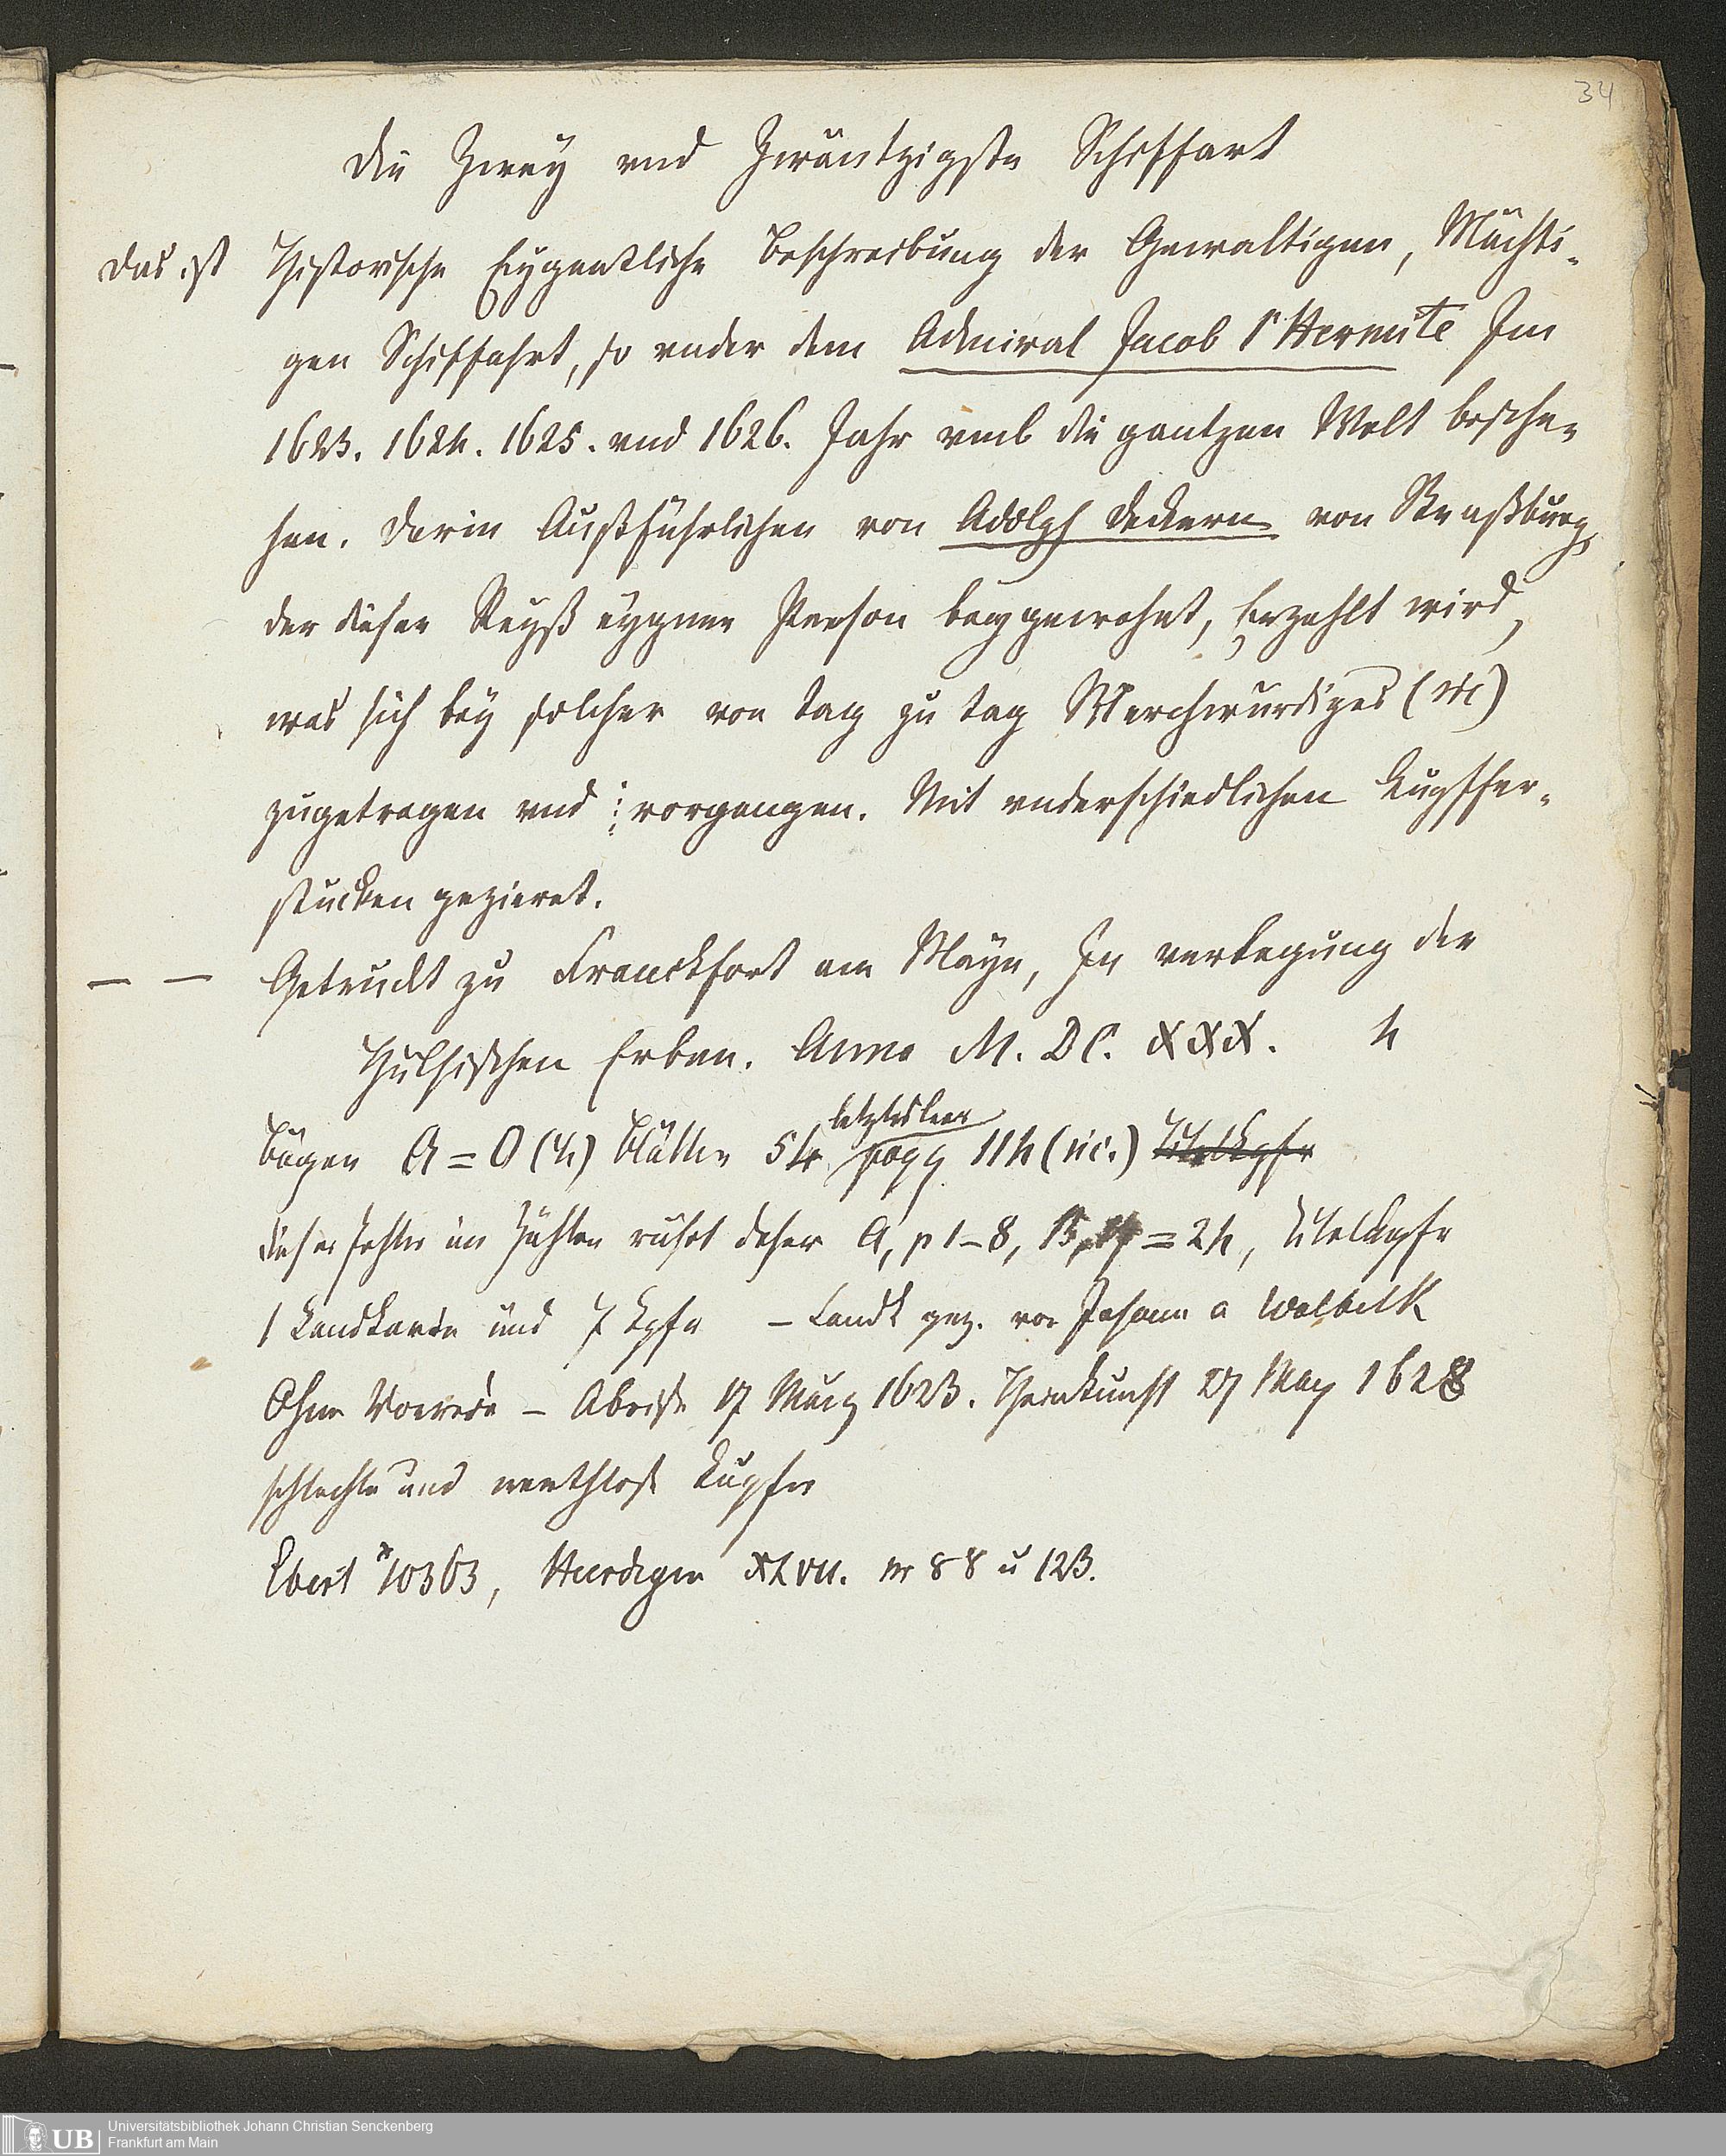 34
Die Zwey vnd Zwäntzigste Schiffart
Das ist Historische Eygentliche Beschreibung der Gewaltigen, Mächti-
gen Schiffahrt, so vnder dem Admiral Jacob l'Hermite Im
1623. 1624. 1625. vnd 1626. Jahr vmb die gantzen Welt besche-
hen. Darin Außführlichen von Adolph Deckern von Straßburg,
der dieser Reyß eygner Person beygewohnt, Erzehlt wird,
was sich bey solcher von tag zu tag Merchwurdiges (sic)
zugetragen vnd vorgangen. Mit vnderschiedlichen Kupffer-
stucken gezieret.
— — Getruckt zu Franckfort am Mayn, In verlegung der
Hulsischen Erben. Anno M. DC. XXX. 4
letztes leer
Bogen A = O (4) Blätter 54 pagg 114 (sic.) Titelkpfr
dieser Fehler im Zählen rührt daher A, p 1–8, B, = 24, Titelkpfr
1 Landkarte und 7 Kpfr – Landk gez. von Johann a Walbeck
Ohne Vorrede – Abreise 17 März 1623. Heimkunft 27 May 1628
schlechte und werthlose Kupfer
Ebert 10363, Heerdegen XLVII. nr 88 u 123.
UB
Universitätsbibliothek Johann Christian Senckenberg
Frankfurt am Main